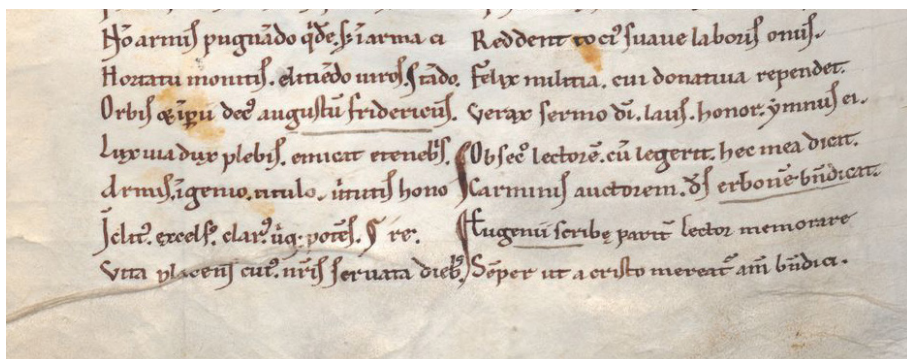 Nō armis pugnādo q̄de. s; īarma ci
Hortatu monitis. eliciēdo uiros. stādo.
Orbis &īpii dec9 augustū fridericus.
Lux uia dux plebis. emicat etenebris.
Armis. īgenio. titulo. uirtutis hono
Īclit9. excels9. clar9. potēs. re.
Vita placens cui9. nr̄is seruata dieb9.
Reddent toci9 suaue laboris onus.
Felix militia. cui donatiua rependet.
Verax sermo dī. laus. honor. ẏmnus ei.
Obsec̄o lectorē. cū legerit. hec mea dicat.
Carminis auctorem. d̄s erbonē. bn̄dicat.
Eugenii scribę parit̄ lector memorare
Sēper ut a cristo mereat̄ am̄ bn̄dici.